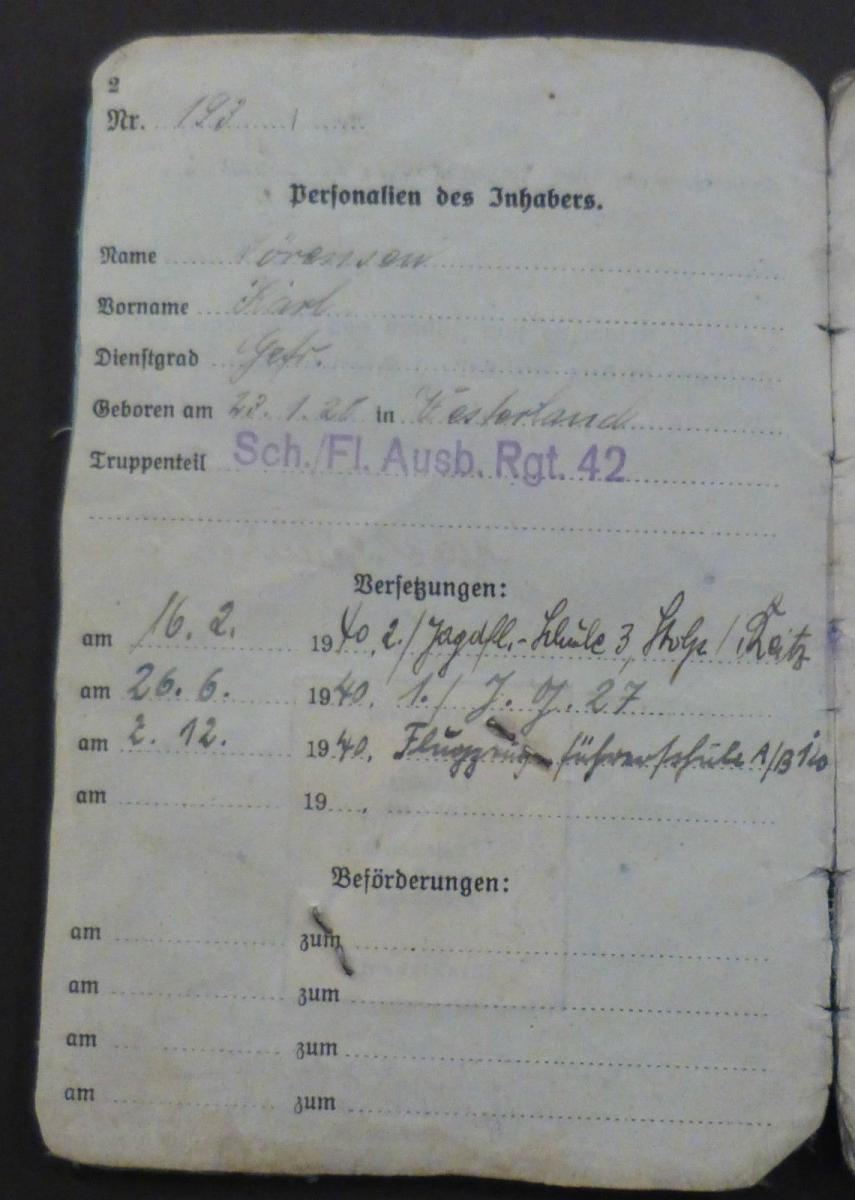 2
Nr. 193 /
Personalien des Inhabers.
Name Sörensen
Vorname Karl
Dienstgrad Gefr.
Geboren am 23.1.20 in Westerland
Truppenteil Sch./Fl. Ausb. Rgt. 42
Versetzungen:
am 16. 2. 1940, 2./Jagdfl.-Schule 3, Stolp/
am 26. 6. 1940. 1./J. G. 27
am 2. 12. 1940. Flugzeugführerschule A/B
am 19 .
Beförderungen:
am zum
am zum
am zum
am zum